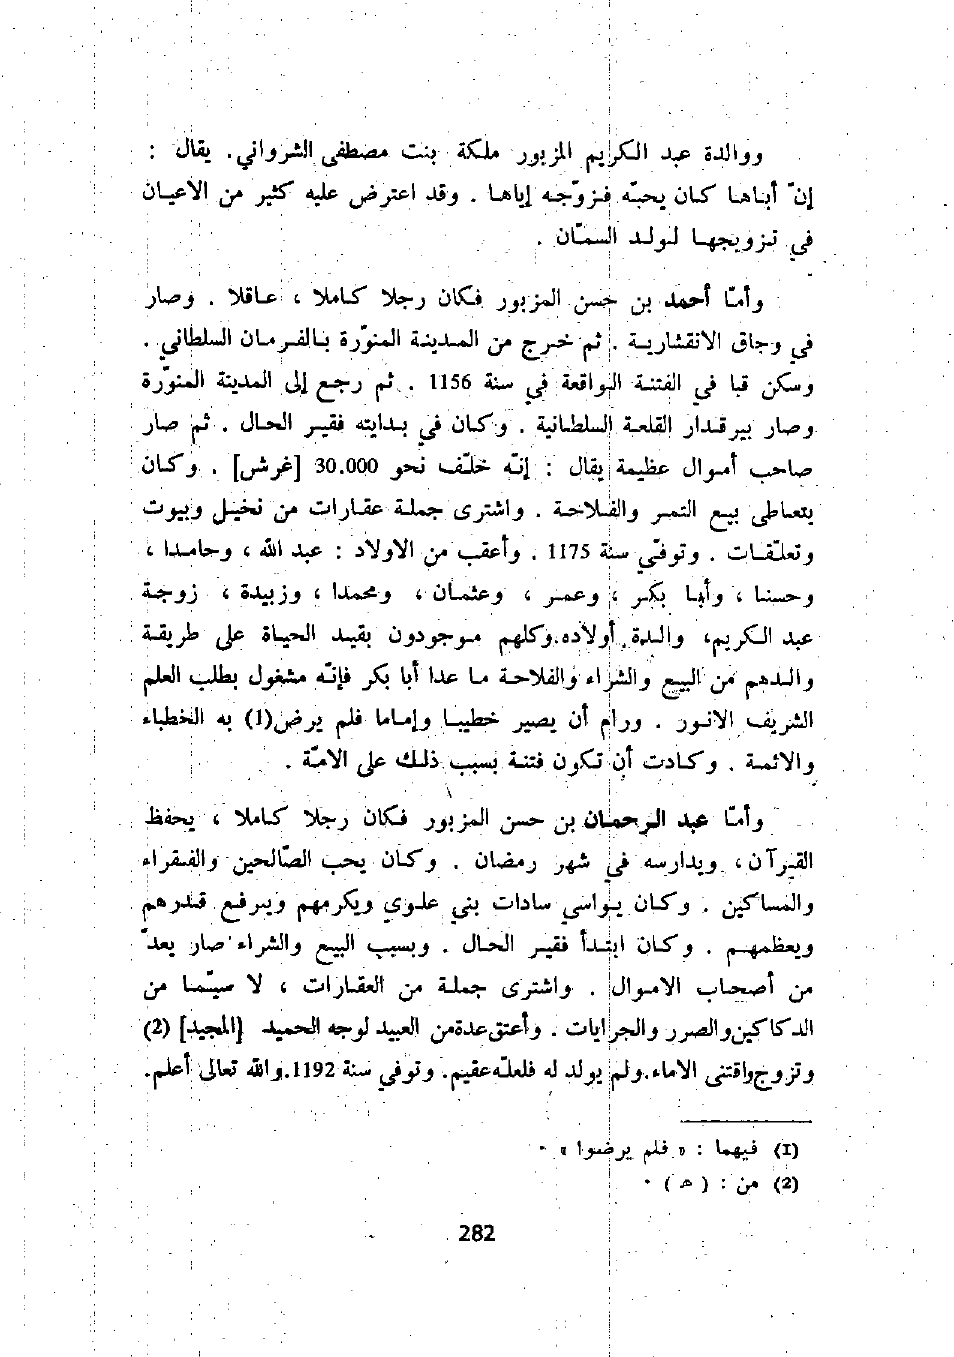 ووالدة عبد الكريم المزبور ملكة بنت مصطفى الشرواني. يقال :
إنّ أباها كان يحبّه فزوّجه إياها . وقد اعترض عليه كثير من الاعيان
في تزويجها لولد السمّان .
وأمّا أحمد بن حسن المزبور فكان رجلا كاملا ، عاقلا . وصار
في وجاق الانقشارية . ثم خرج من المدينة المنوّرة بالفرمان السلطاني .
وسكن قبا في الفتنة الواقعة في سنة 1156 . ثم رجع إلى المدينة المنوّرة
وصار بيرقدار القلعة السلطانية . وكان في بدايته فقير الحال . ثم صار
صاحب أموال عظيمة يقال : إنّه خلّف نحو 30.000 [غرش] . وكان
يتعاطى بيع التمر والفلاحة . واشترى جملة عقارات من نخيل وبيوت
وتعلّقات . وتوفّي سنة 1175 . وأعقب من الاولاد : عبد الله ، وحامدا ،
وحسنا ، وأبا بكر ، وعمر ، وعثمان ، ومحمدا ، وزبيدة ، زوجة
عبد الكريم، والدة أولاده.وكلهم موجودون بقيد الحياة على طريقة
والدهم من البيع والشراء والفلاحة ما عدا أبا بكر فإنّه مشغول بطلب العلم
الشريف الانور . ورام أن يصير خطيبا وإماما فلم يرض(1) به الخطباء
والائمة . وكادت أن تكون فتنة بسبب ذلك على الامّة .
وأمّا عبد الرحمان بن حسن المزبور فكان رجلا كاملا ، يحفظ
القرآن، ويدارسه في شهر رمضان . وكان يحب الصّالحين والفقراء
والمساكين . وكان يواسي سادات بني علوي ويكرمهم ويرفع قدرهم
ويعظمهم . وكان ابتدأ فقير الحال . وبسبب البيع والشراء صار يعدّ
من أصحاب الاموال . واشترى جملة من العقارات ، لا سيّما من
الدكاكين والصرر والجرايات . وأعتق عدة من العبيد لوجه الحميد [المجيد] (2)
وتزوج واقتنى الاماء.ولم يولد له فلعلّه عقيم. وتوفي سنة 1192.والله تعالى أعلم.
(1) فيهما : « فلم يرضوا » .
(2) من : ( ه ) .
282